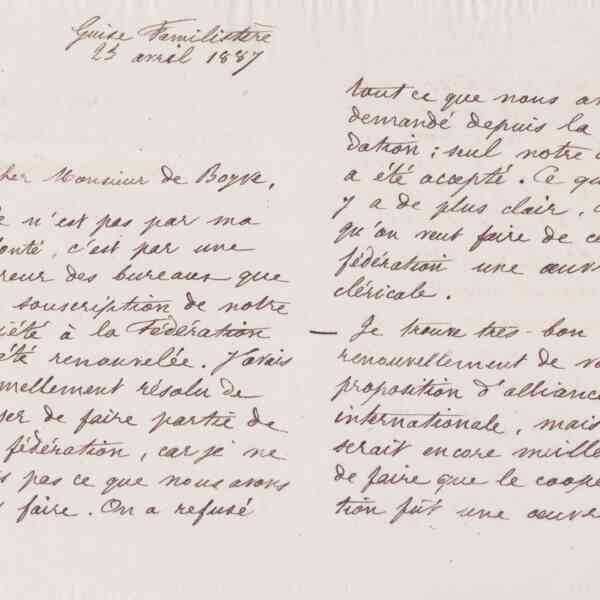 Guise Familistère
25 avril 1887
cher Monsieur de Boyve,
e n'est pas par ma
onté, c'est par une
reur des bureaux que
souscription de notre
iété à la Fédération
été renouvelée. J'avais
mellement résolu de
ser de faire partie de
fédération, car je ne
is pas ce que nous avons
faire. On a refusé
tout ce que nous a
demandé depuis la
dation ; seul notre
a été accepté. Ce qu
y a de plus clair, c
qu'on veut faire de ce
fédération une œuv
cléricale.
— Je trouve très-bon
renouvellement de vo
proposition d'alliance
internationale, mais
serait encore meille
de faire que le coopé
tion fût une œuvre